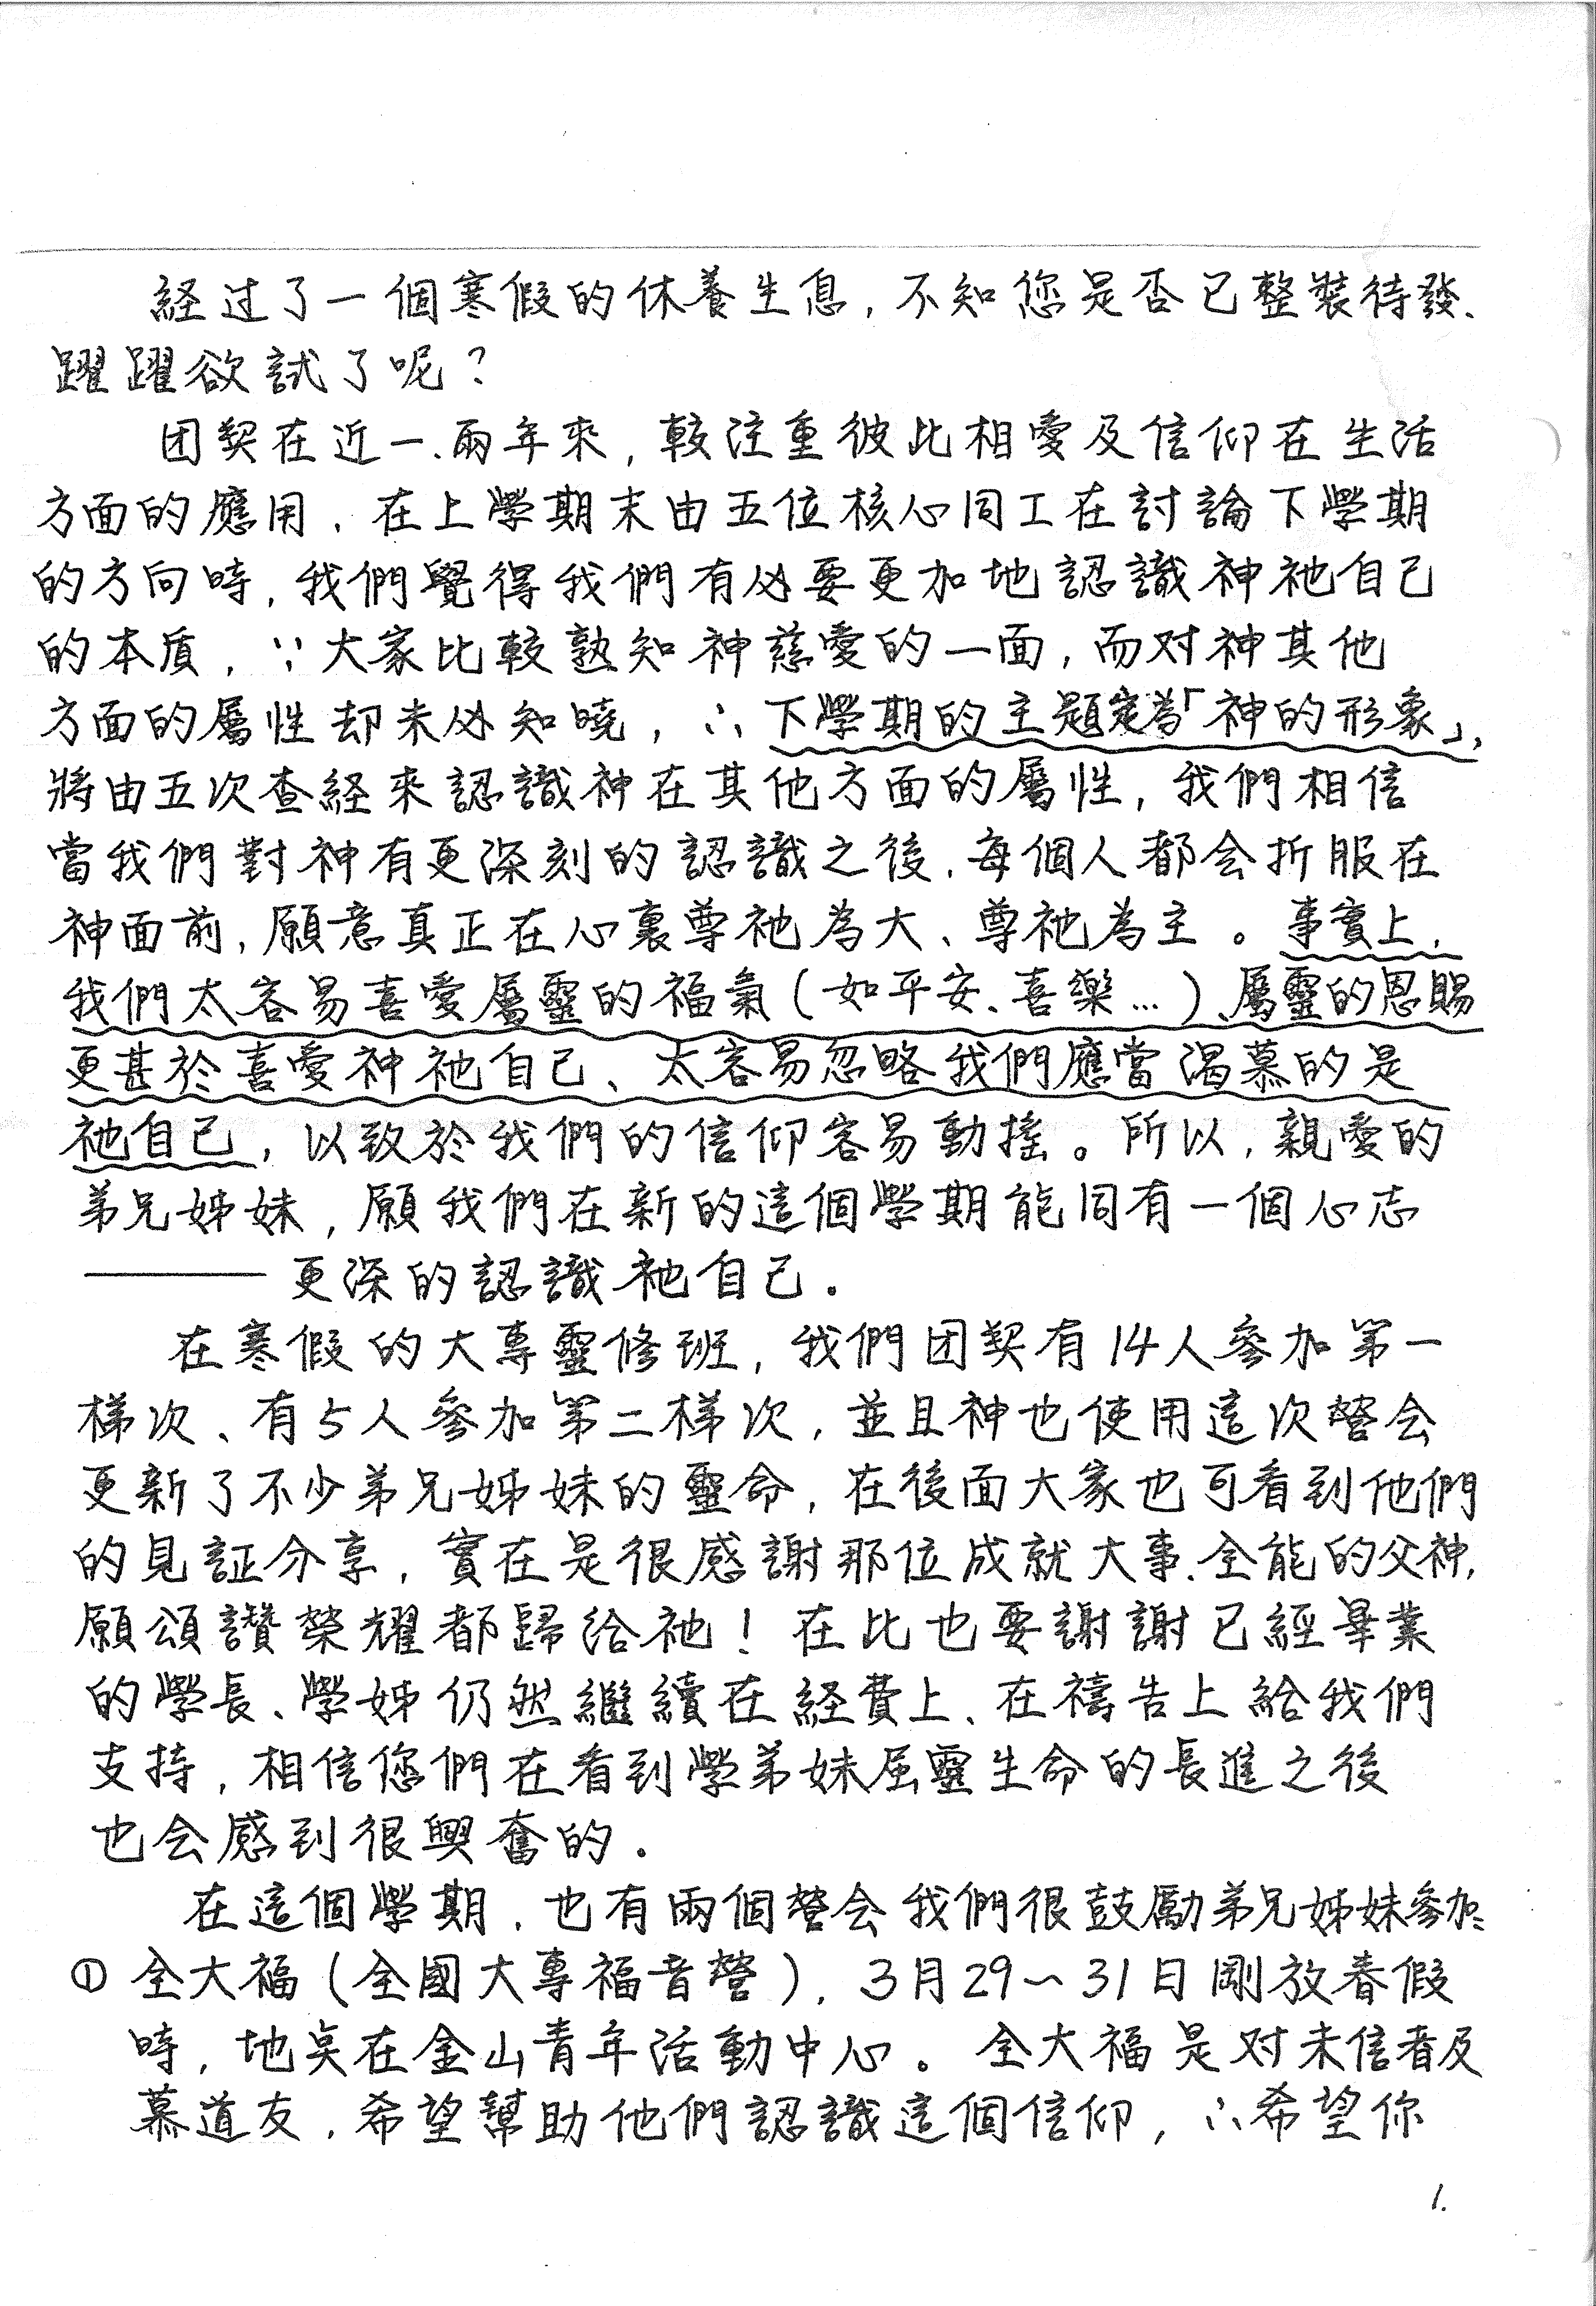 経过了一個寒假的休養生息，不知您是否已整裝待發、
躍躍欲試了呢？
团契在近一、兩年來，較注重彼此相愛及信仰在生活
方面的應用．在上學期末由五位核心同工在討論下學期
的方向時，我們覺得我們有必要更加地認識神祂自己
的本质，∵大家比較熟知神慈愛的一面，而对神其他
方面的屬性却未必知曉，∴下學期的主題定為「神的形象」，
將由五次查経來認識神在其他方面的屬性，我們相信
當我們對神有更深刻的認識之後，每個人都会折服在
神面前，願意真正在心裏尊祂為大、尊祂為主。事實上，
我們太容易喜愛屬靈的福氣（如平安、喜樂…）、屬靈的恩賜
更甚於喜愛神祂自己、太容易忽略我們應當渴慕的是
祂自己，以致於我們的信仰容易動搖。所以，親愛的
弟兄姊妹，願我們在新的這個學期能同有一個心志
——更深的認識祂自己．
在寒假的大專靈修班，我們团契有14人參加第一
梯次、有5人參加第二梯次，並且神也使用這次營会
更新了不少弟兄姊妹的靈命，在後面大家也可看到他們
的見証分享，實在是很感謝那位成就大事、全能的父神，
願頌讚榮耀都歸給祂！在比也要謝謝已經畢業
的學長、學姊仍然繼續在経費上、在禱告上給我們
支持，相信您們在看到學弟妹屈靈生命的長進之後
也会感到很興奮的．
在這個學期，也有兩個營会我們很鼓勵弟兄姊妹參加：
① 全大福（全國大專福音營），3月29~31日剛放春假
時，地奌在金山青年活動中心。全大福是对未信者及
慕道友，希望幫助他們認識這個信仰，∴希望你
1.